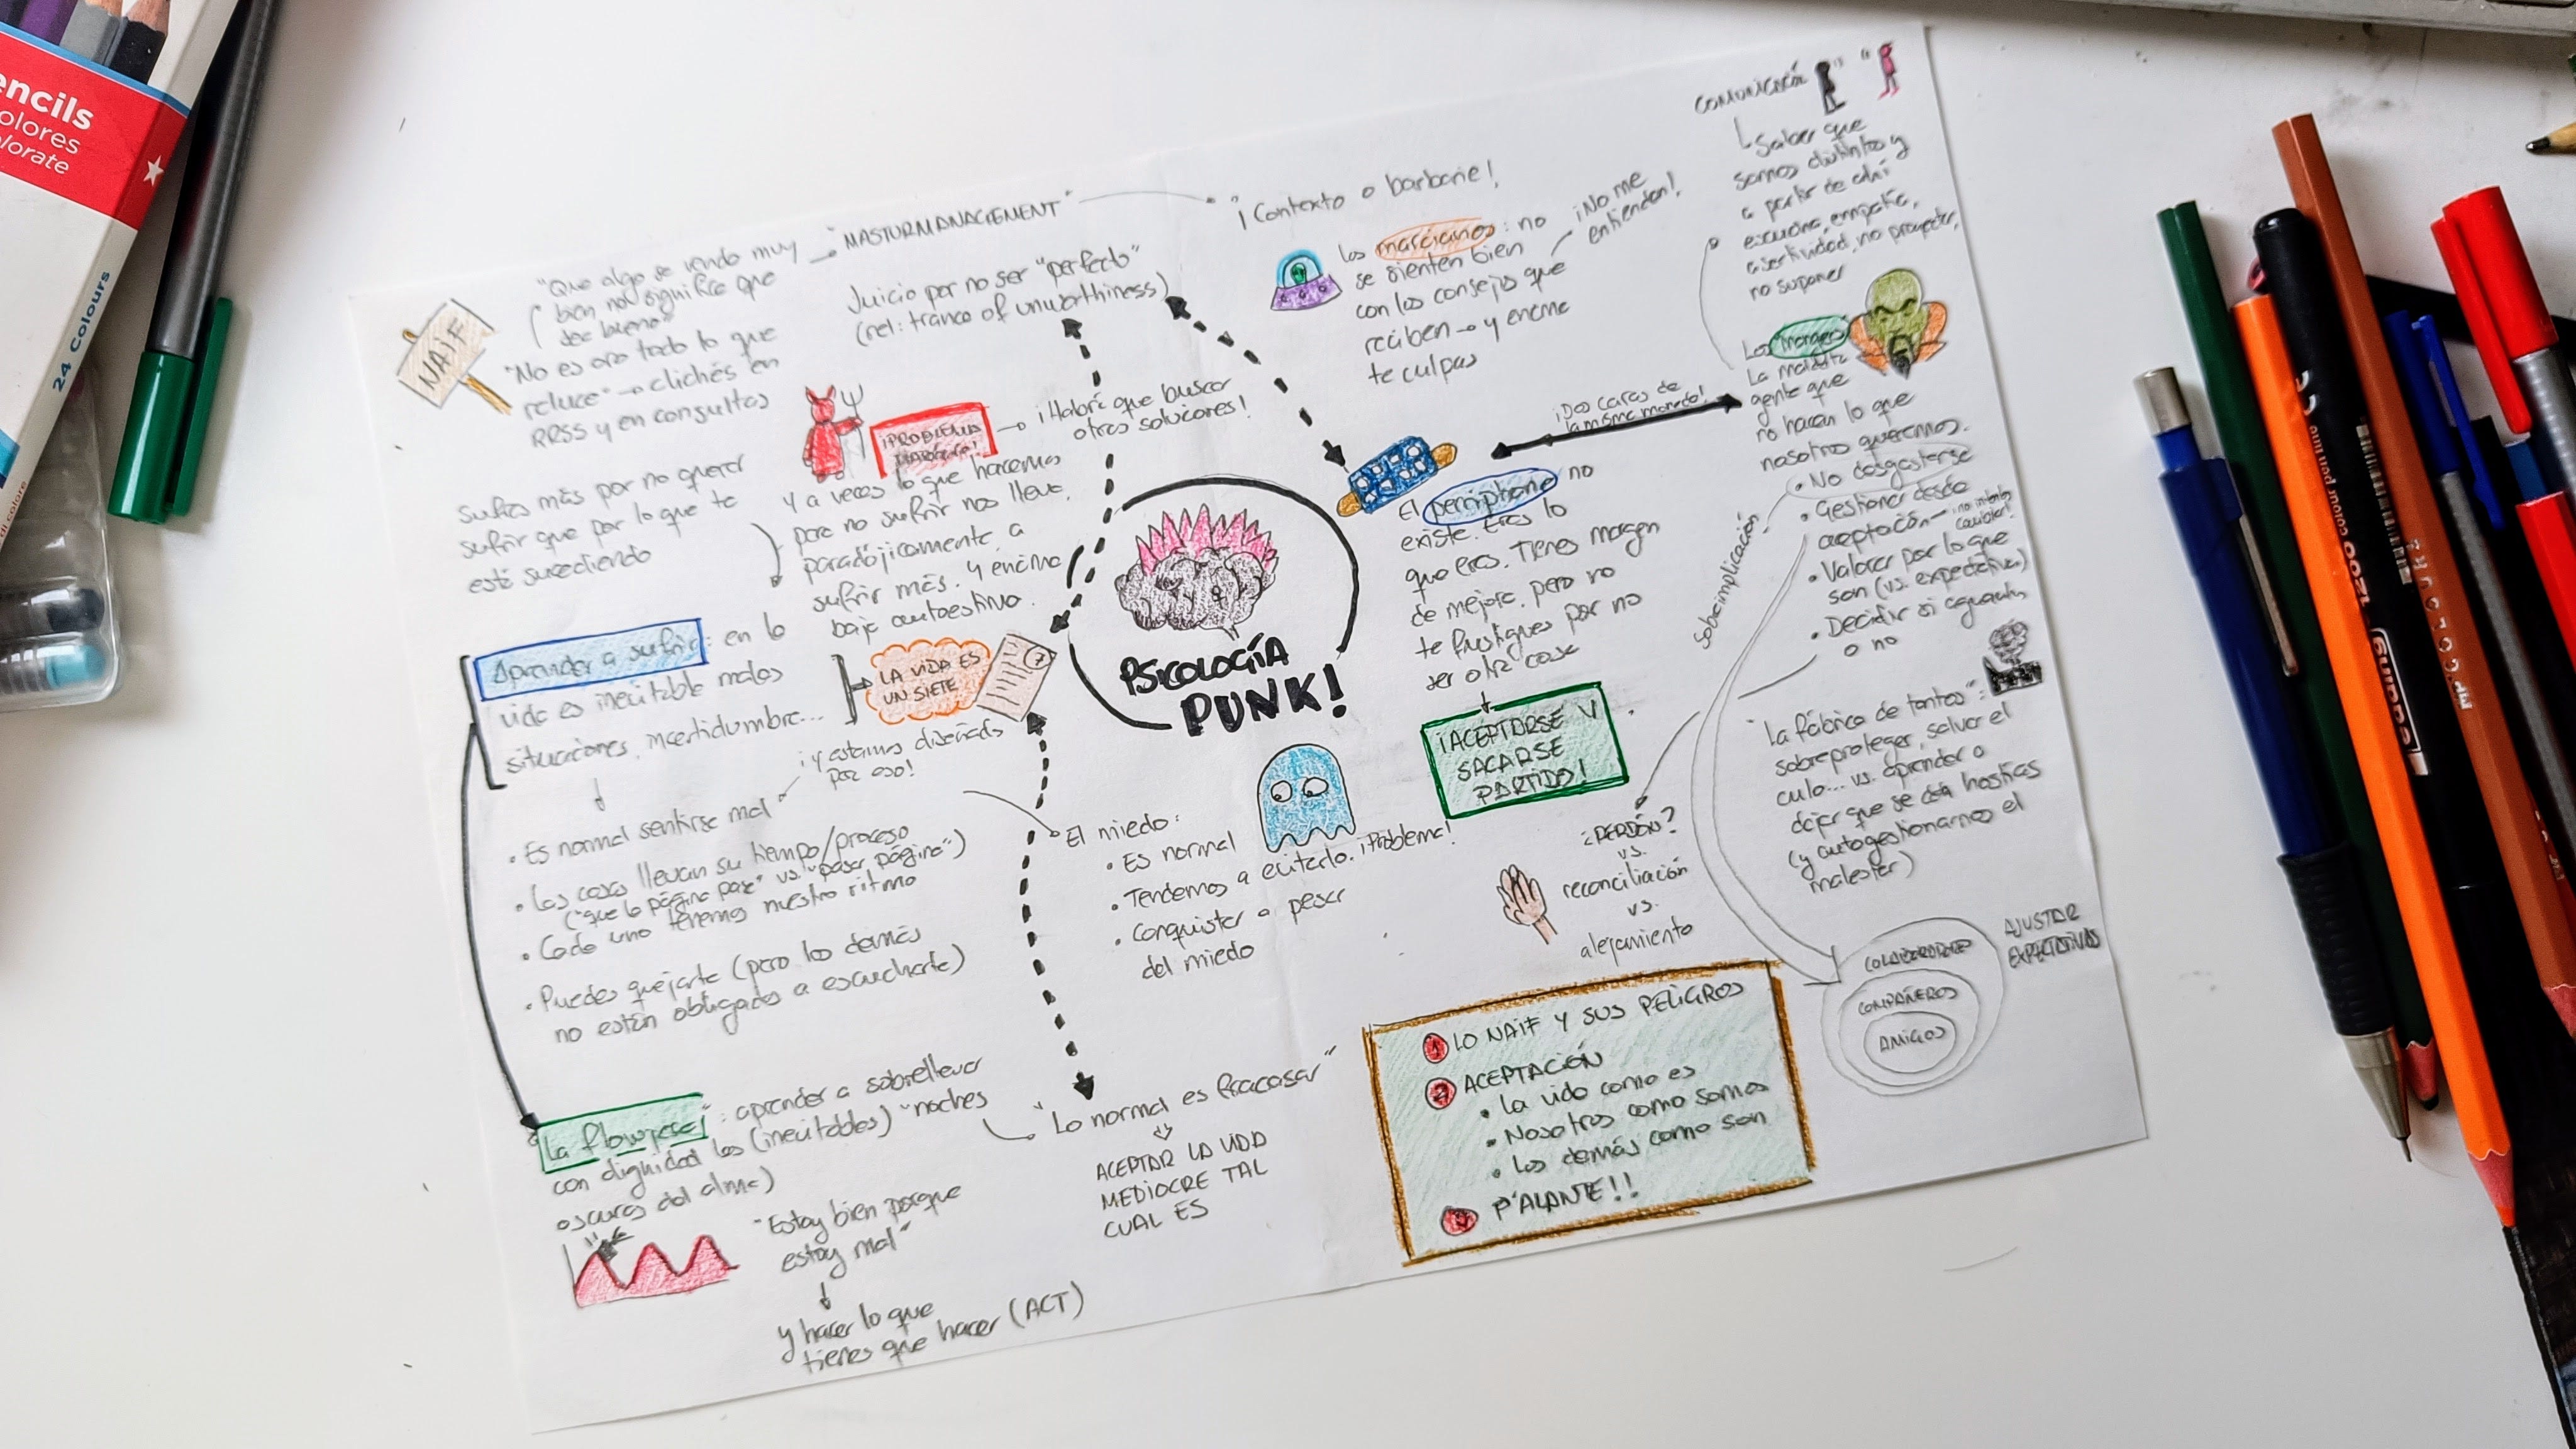 encils
olores
olorate
24 Colours
NAIF
"Que algo se venda muy
bien no significa que
sea bueno"
"No es oro todo lo que
reluce" → clichés en
RRSS y en consultas
"MASTURMANAGEMENT"
Juicio por no ser "perfecto"
(rel: trance of unworthiness)
¡PROBLEMA
¡Habrá que buscar
otras soluciones!
Sufres más por no querer
sufrir que por lo que te
está sucediendo
Y a veces lo que hacemos
para no sufrir nos lleva,
paradójicamente, a
sufrir más. Y encima
baja autoestima.
Aprender a sufrir: en la
vida es inevitable malas
situaciones, incertidumbre...
LA VIDA ES
UN SIETE
7
¡y estamos diseñados
por eso!
• Es normal sentirse mal
• Las cosas llevan su tiempo/proceso
("que la página pase" vs. "pasar página")
• Cada uno tenemos nuestro ritmo
• Puedes quejarte (pero los demás
no están obligados a escucharte)
La flowjera: aprender a sobrellevar
con dignidad las (inevitables) "noches
oscuras del alma)
"Estoy bien porque
estoy mal"
↓
y hacer lo que
tienes que hacer (ACT)
PSICOLOGÍA
PUNK!
El miedo:
• Es normal
• Tendemos a evitarlo. ¡Problema!
• Conquistar a pesar
del miedo
"Lo normal es fracasar"
ACEPTAR LA VIDA
MEDIOCRE TAL
CUAL ES
¡Contexto o barbarie!
Los marcianos: no
se sienten bien
con los consejos que
reciben → y encima
te culpas
¡No me
entienden!
¡Dos caras de
la misma moneda!
El perriphone no
existe. Eres lo
que eres. Tienes margen
de mejora, pero no
te fustigues por no
ser otra cosa
¡ACEPTARSE Y
SACARSE
PARTIDO!
COMUNICACIÓN
Saber que
somos distintos y
a partir de ahí
escucha, empatía,
asertividad, no proyectar,
no suponer
Los
La maldita
gente que
no hacen lo que
nosotros queremos.
• No desgastarse
• Gestionar desde
aceptación → ¡no intento
cambiar!
• Valorar por lo que
son (vs. expectativas)
• Decidir si aguantas
o no
Sobreimplicación
"La fábrica de tontos":
sobreproteger, salvar el
culo... vs. aprender a
dejar que se den hostias
(y autogestionarnos el
malestar)
¿PERDÓN?
vs.
reconciliación
vs.
alejamiento
AJUSTAR
EXPECTATIVAS
COLABORADORES
COMPAÑEROS
AMIGOS
1 LO NAIF Y SUS PELIGROS
2 ACEPTACIÓN
• La vida como es
• Nosotros como somos
• Los demás como son
3 P'ALANTE!!